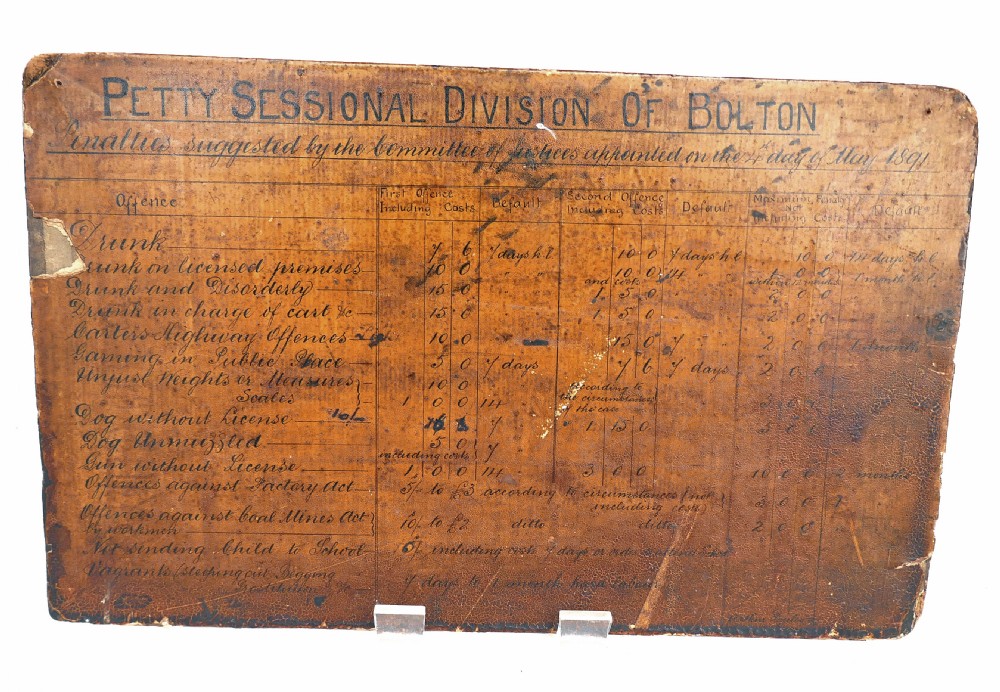 PETTY SESSIONAL DIVISION OF BOLTON
Penalties suggested by the Committee of Justices appointed on the day of May 1891.
Offence First Offence Including Costs Default Second Offence Including Costs Default Maximum Penalty Including Costs Default
Drunk 7 6 7 days h.l 10 0 7 days h.l 10 0 14 days h.l
Drunk on licensed premises 10 0 " " 10 0 and costs 14 " " 1 month h.l
Drunk and Disorderly 15 0 " " 1 5 0 2 0 0
Drunk in charge of cart &c 15 0 " 1 5 0 2 0 0
Carters Highway Offences 10 0 " 15 0 7 " 2 0 0
Gaming in Public Place 5 0 7 days 7 6 7 days 2 0
Unjust Weights or Measures 10 0 According to
Scales 1 0 0 14 the circumstances of the case
Dog without License 10/- 7 " 1 15 0 5 0 0
Dog Unmuzzled 5 0 including costs 7
Gun without License 1 0 0 14 3 0 0 10 0 0 months
Offences against Factory Act 5/- to £3 according to circumstances (not including costs) 3 0 0
Offences against Coal Mines Act by workmen 10/- to £2 ditto ditto 2 0 0
Not sending Child to School including costs 7 days or
Vagrants sleeping out Begging 7 days to 1 month hard labour
&c